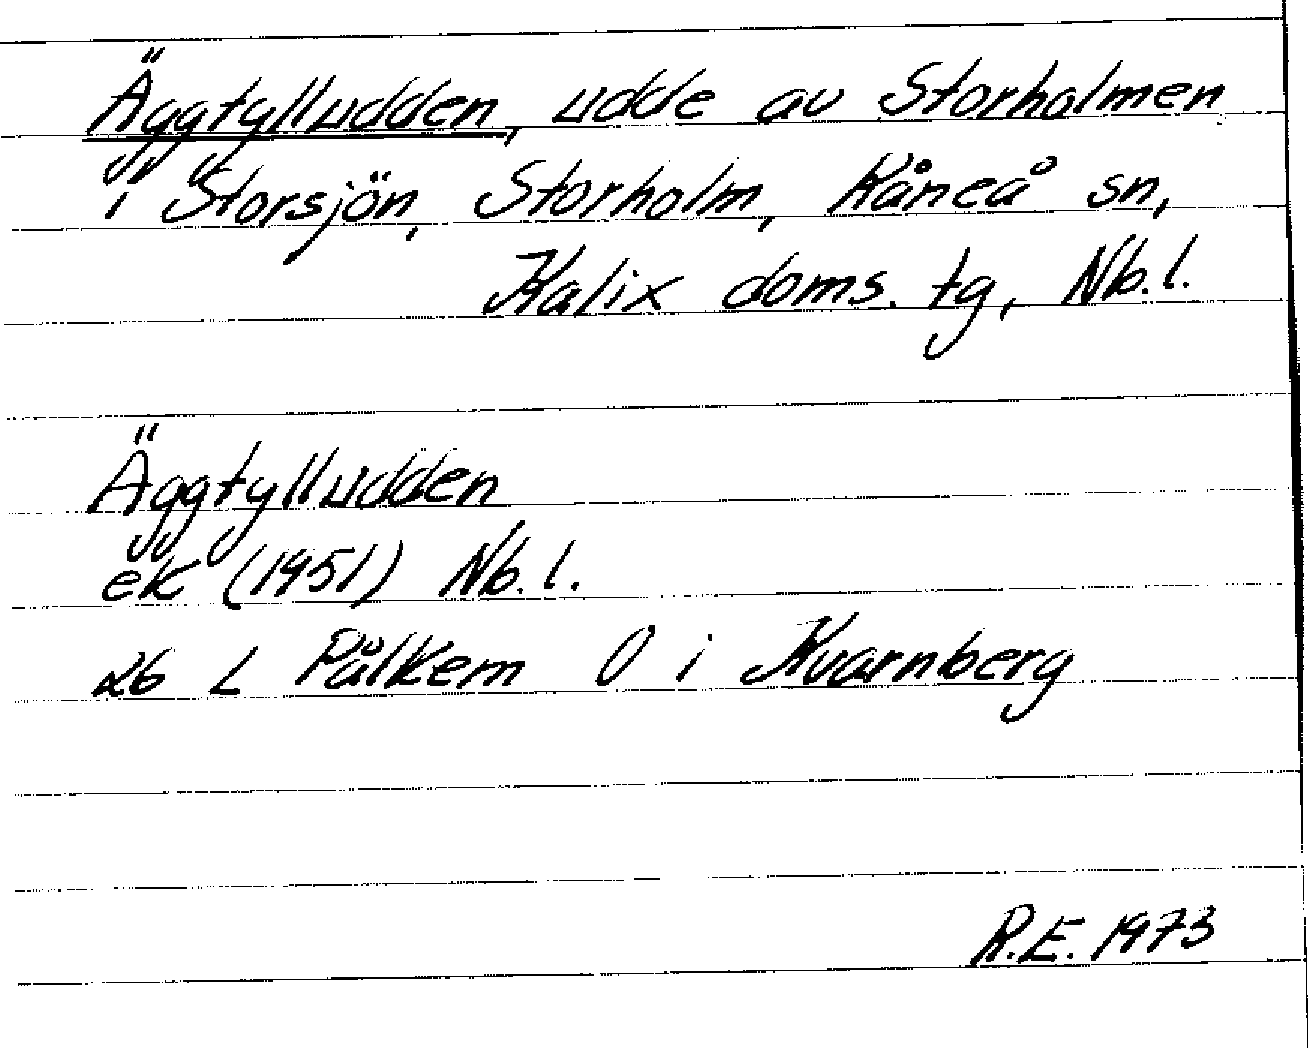 Äggtylludden, udde av Storholmen
i Storsjön, Storholm, Råneå sn,
Kalix doms. tg, Nb. l.
Äggtylludden
ek (1951) Nb. l.
26 L Pålkem O i Kvarnberg
R.E. 1973